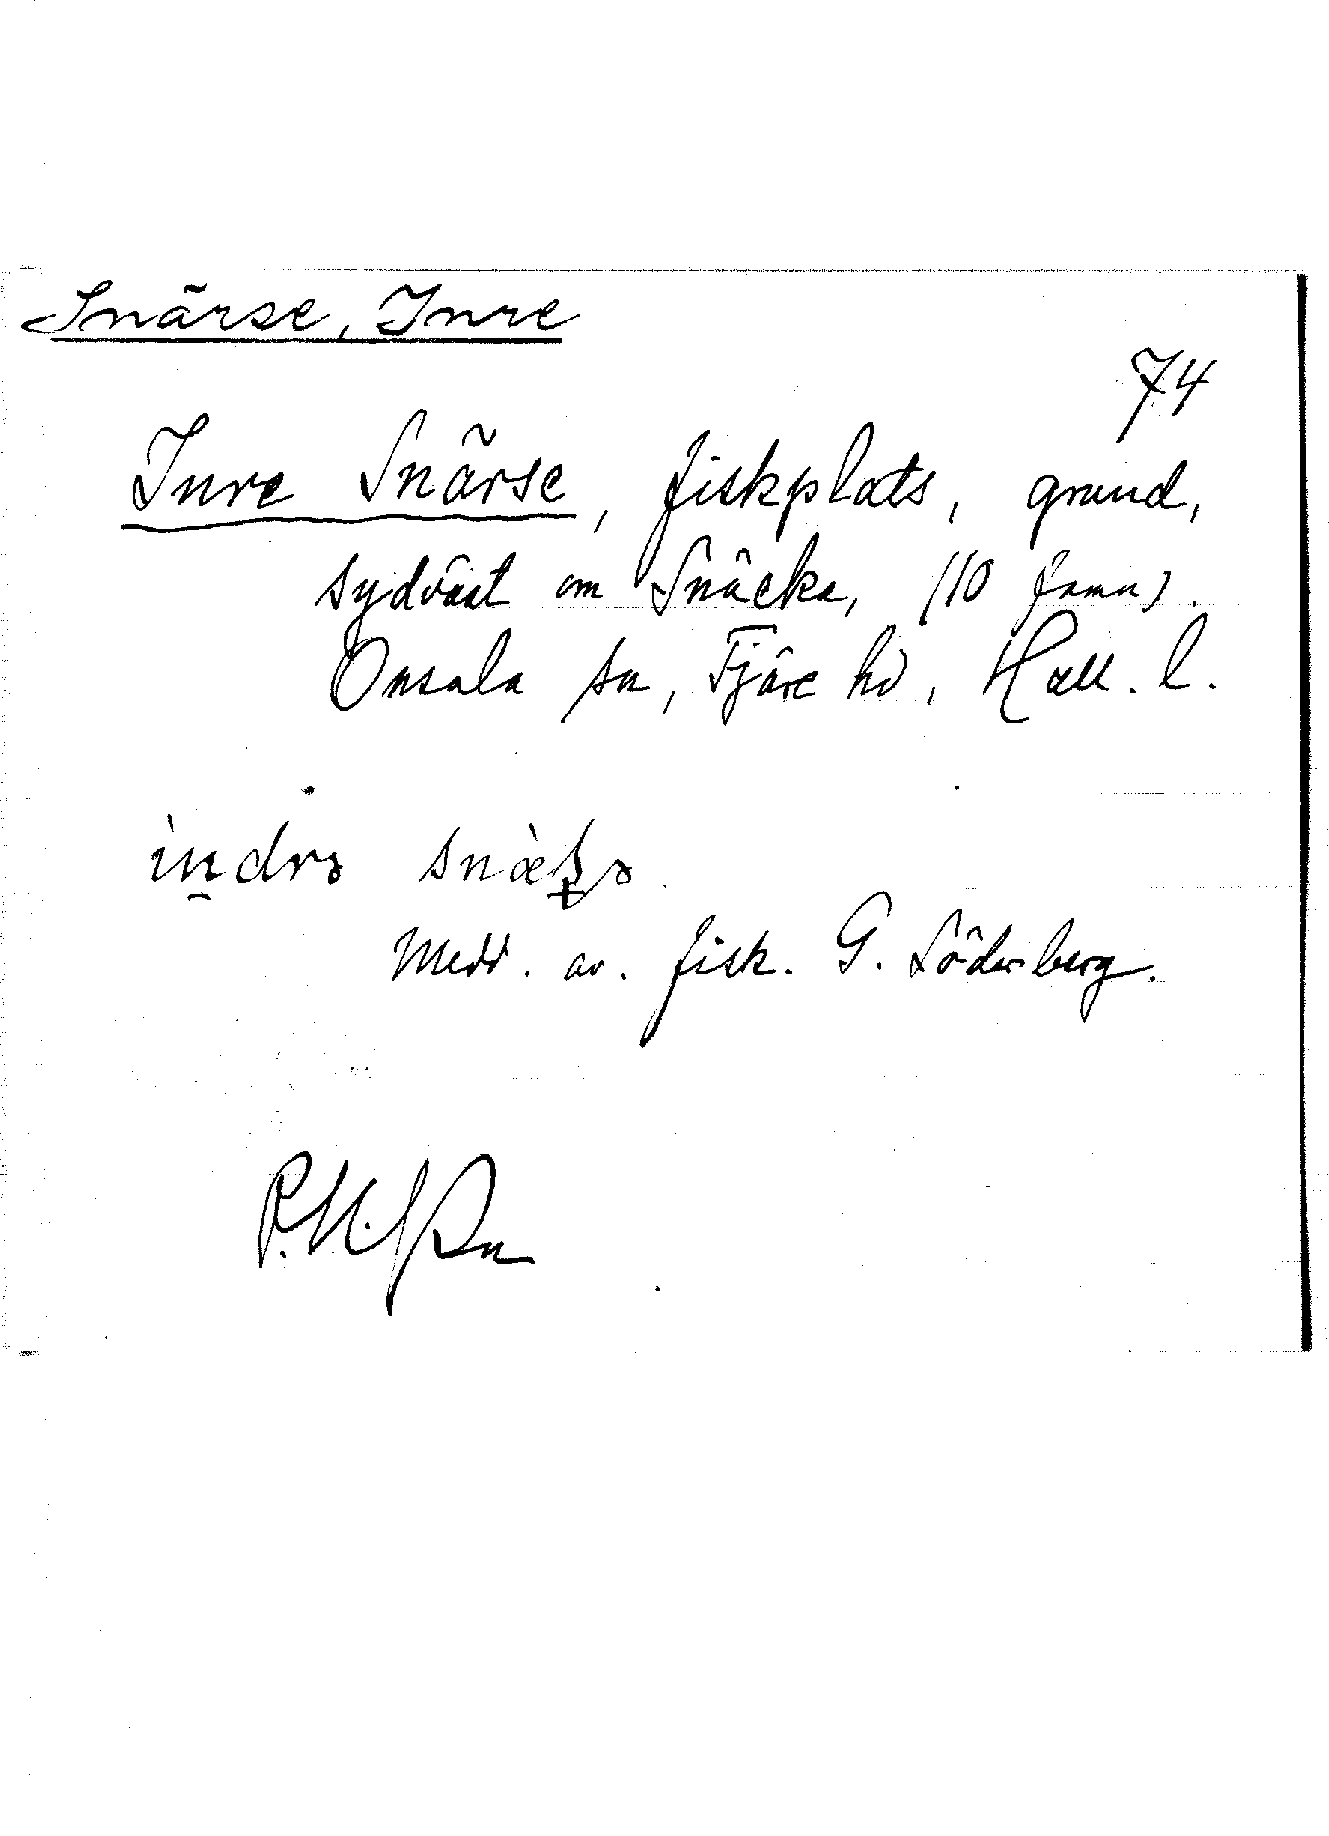 Snärse, Inre
74
Inre Snärse, fiskplats, grund,
sydväst om Snäcka, (10 famn).
Onsala sn, Fjäre hd, Hall. l.
Medd. av. fisk. G. Söderberg.